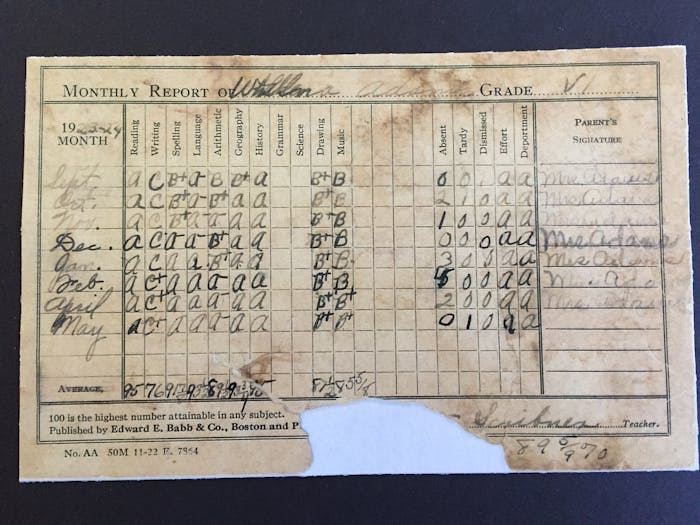 MONTHLY REPORT OF Adams GRADE VI
1923-24
MONTH Reading Writing Spelling Language Arithmetic Geography History Grammar Science Drawing Music Absent Tardy Dismissed Effort Deportment PARENT'S SIGNATURE
Sept. a C B+ a- B B+ a B+ B 0 0 a a Mrs. Adams
Oct. a C B+ a- B+ a a B+ B 2 1 0 a a Mrs Adams
Nov. a C B+ a a a B+ B 1 0 0 a a Mrs Adams
Dec. a C a a- B+ a a B+ B 0 0 0 a a Mrs Adams
Jan. a C a a B+ a a B+ B 3 0 0 a a Mrs Adams
Feb. a C+ a a a a a B+ B 5 0 0 a a Mrs. A
April a C+ a a a a a B+ B+ 2 0 0 a a Mrs. Adams
May a C+ a a a a a B+ B+ 0 1 0 a a
AVERAGE, 95 76
100 is the highest number attainable in any subject.
Teacher.
Published by Edward E. Babb & Co., Boston and P
No. AA 50M 11-22 E. 7864